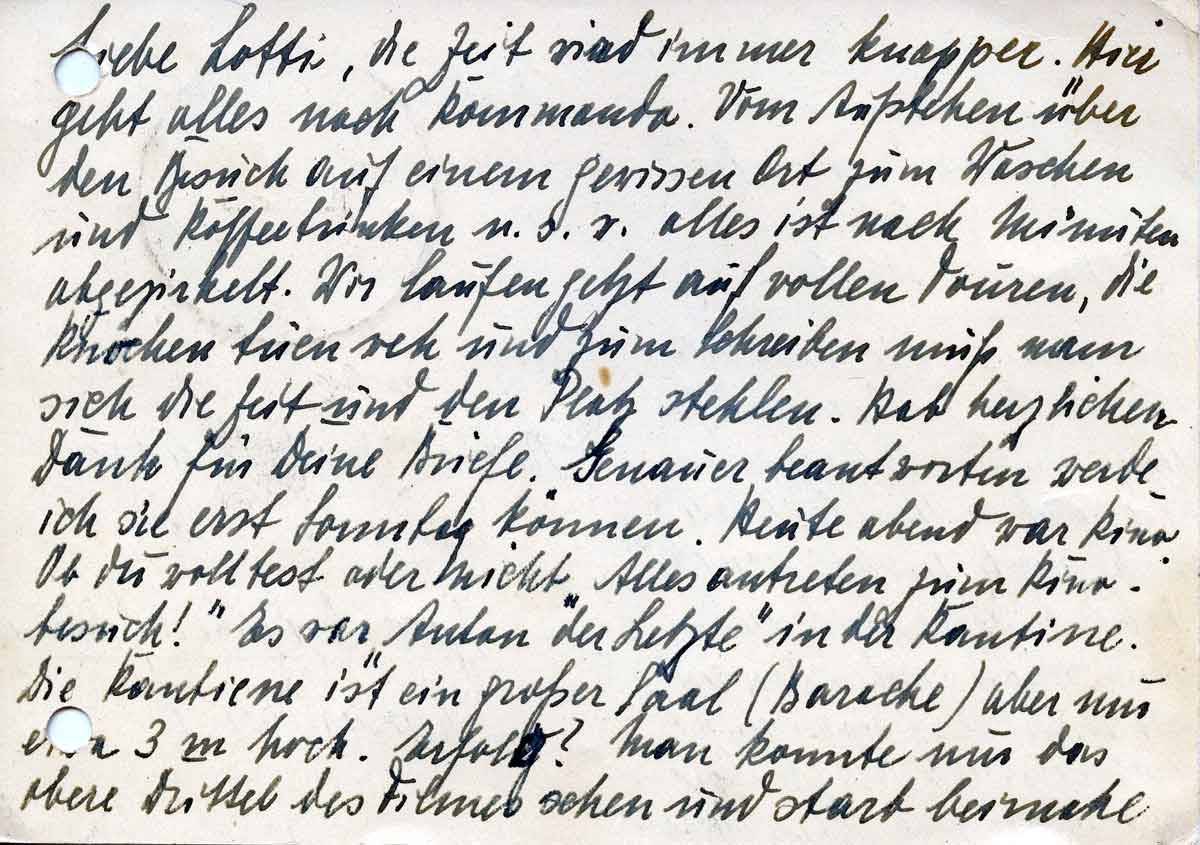 Liebe Lotti, die Zeit wird immer knapper. Hier
geht alles nach Kommando. Vom Aufstehen über
den Besuch auf einem gewissen Ort zum Waschen
und Kaffeetrinken u. s. w. alles ist nach Minuten
abgezirkelt. Wir laufen jetzt auf vollen Touren, die
Knochen tuen weh und zum Schreiben muß man
sich die Zeit und den Platz stehlen. Hab herzlichen
Dank für Deine Briefe. Genauer beantworten werde
ich sie erst Sonntag können. Heute abend war Kino.
Ob du wolltest oder nicht „Alles antreten zum Kino-
besuch!" Es war „Anton "der Letzte" in der Kantine.
Die Kantiene ist ein großer Saal (Baracke) aber nur
etwa 3 m hoch. Erfolg? Man konnte nur das
obere Drittel des Filmes sehen und starb beinahe